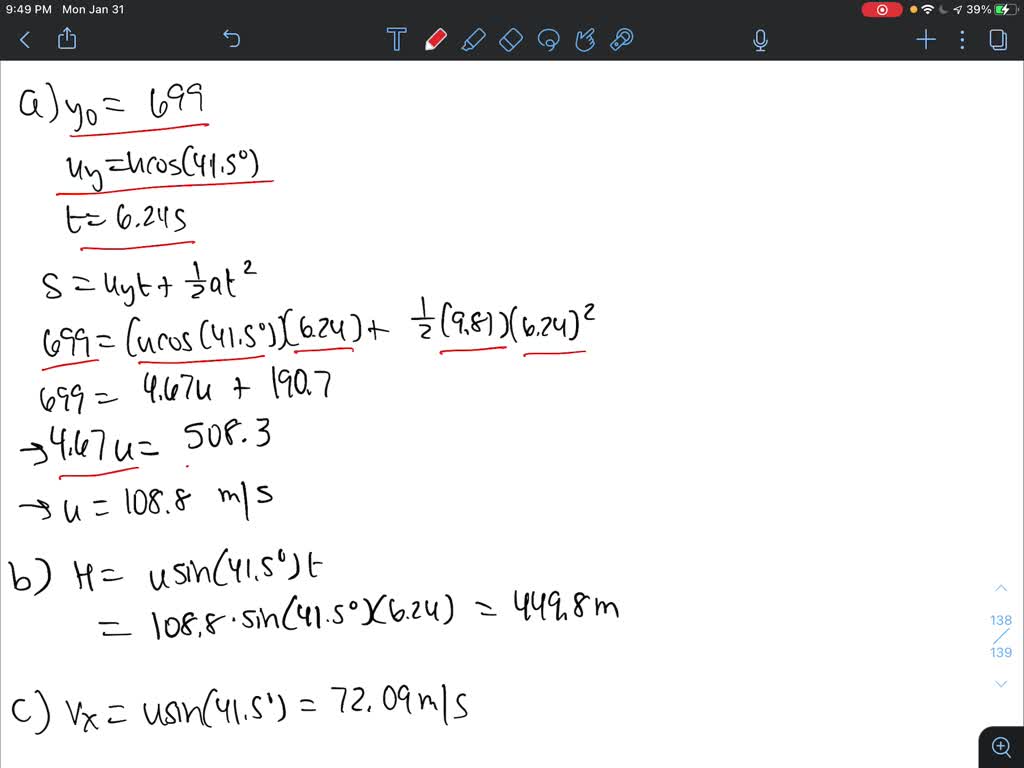 9:49 PM Mon Jan 31 39%
a) y₀ = 699
uy = ucos(41.5°)
t = 6.24s
S = uyt + ½at²
699 = (ucos(41.5°))(6.24) + ½(9.81)(6.24)²
699 = 4.67u + 190.7
→ 4.67u = 508.3
→ u = 108.8 m/s
b) H = usin(41.5°)t
= 108.8·sin(41.5°)(6.24) = 449.8m
c) Vx = usin(41.5°) = 72.09m/s
138
139